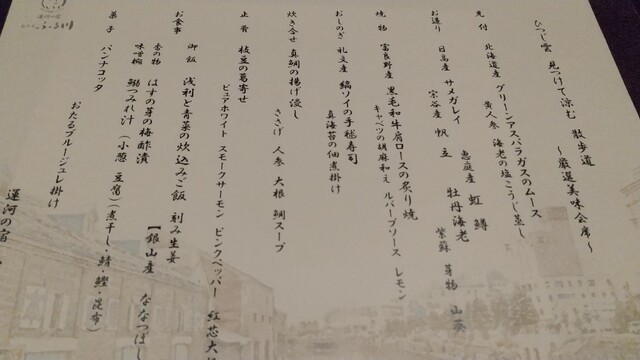 ひつじ雲 見つけて涼む 散歩道
～厳選美味会席～
先付 北海道産 グリーンアスパラガスのムース
黄人参 海老の塩こうじ蒸し
お造り 日高産 サメガレイ 恵庭産 虹鱒
宗谷産 帆立 牡丹海老
紫蘇 芽物 山葵
焼物 富良野産 黒毛和牛肩ロースの炙り焼
キャベツの胡麻和え ルバーブソース レモン
おしのぎ 礼文産 縞ソイの手毬寿司
真海苔の佃煮掛け
炊き合せ 真鯛の揚げ浸し
ささげ 人参 大根 鯛スープ
止肴 枝豆の葛寄せ
ピュアホワイト スモークサーモン ピンクペッパー 紅芯大
お食事 御飯 浅利と青菜の炊込みご飯 刻み生姜
【銀山産 ななつぼし
香の物 はすの芽の梅酢漬
味噌椀 鰯つみれ汁 (小葱 豆腐)(煮干し、鯖・鰹・昆布)
菓子 パンナコッタ
おたるブルージュレ掛け
運河の宿
運河の宿
ふる川